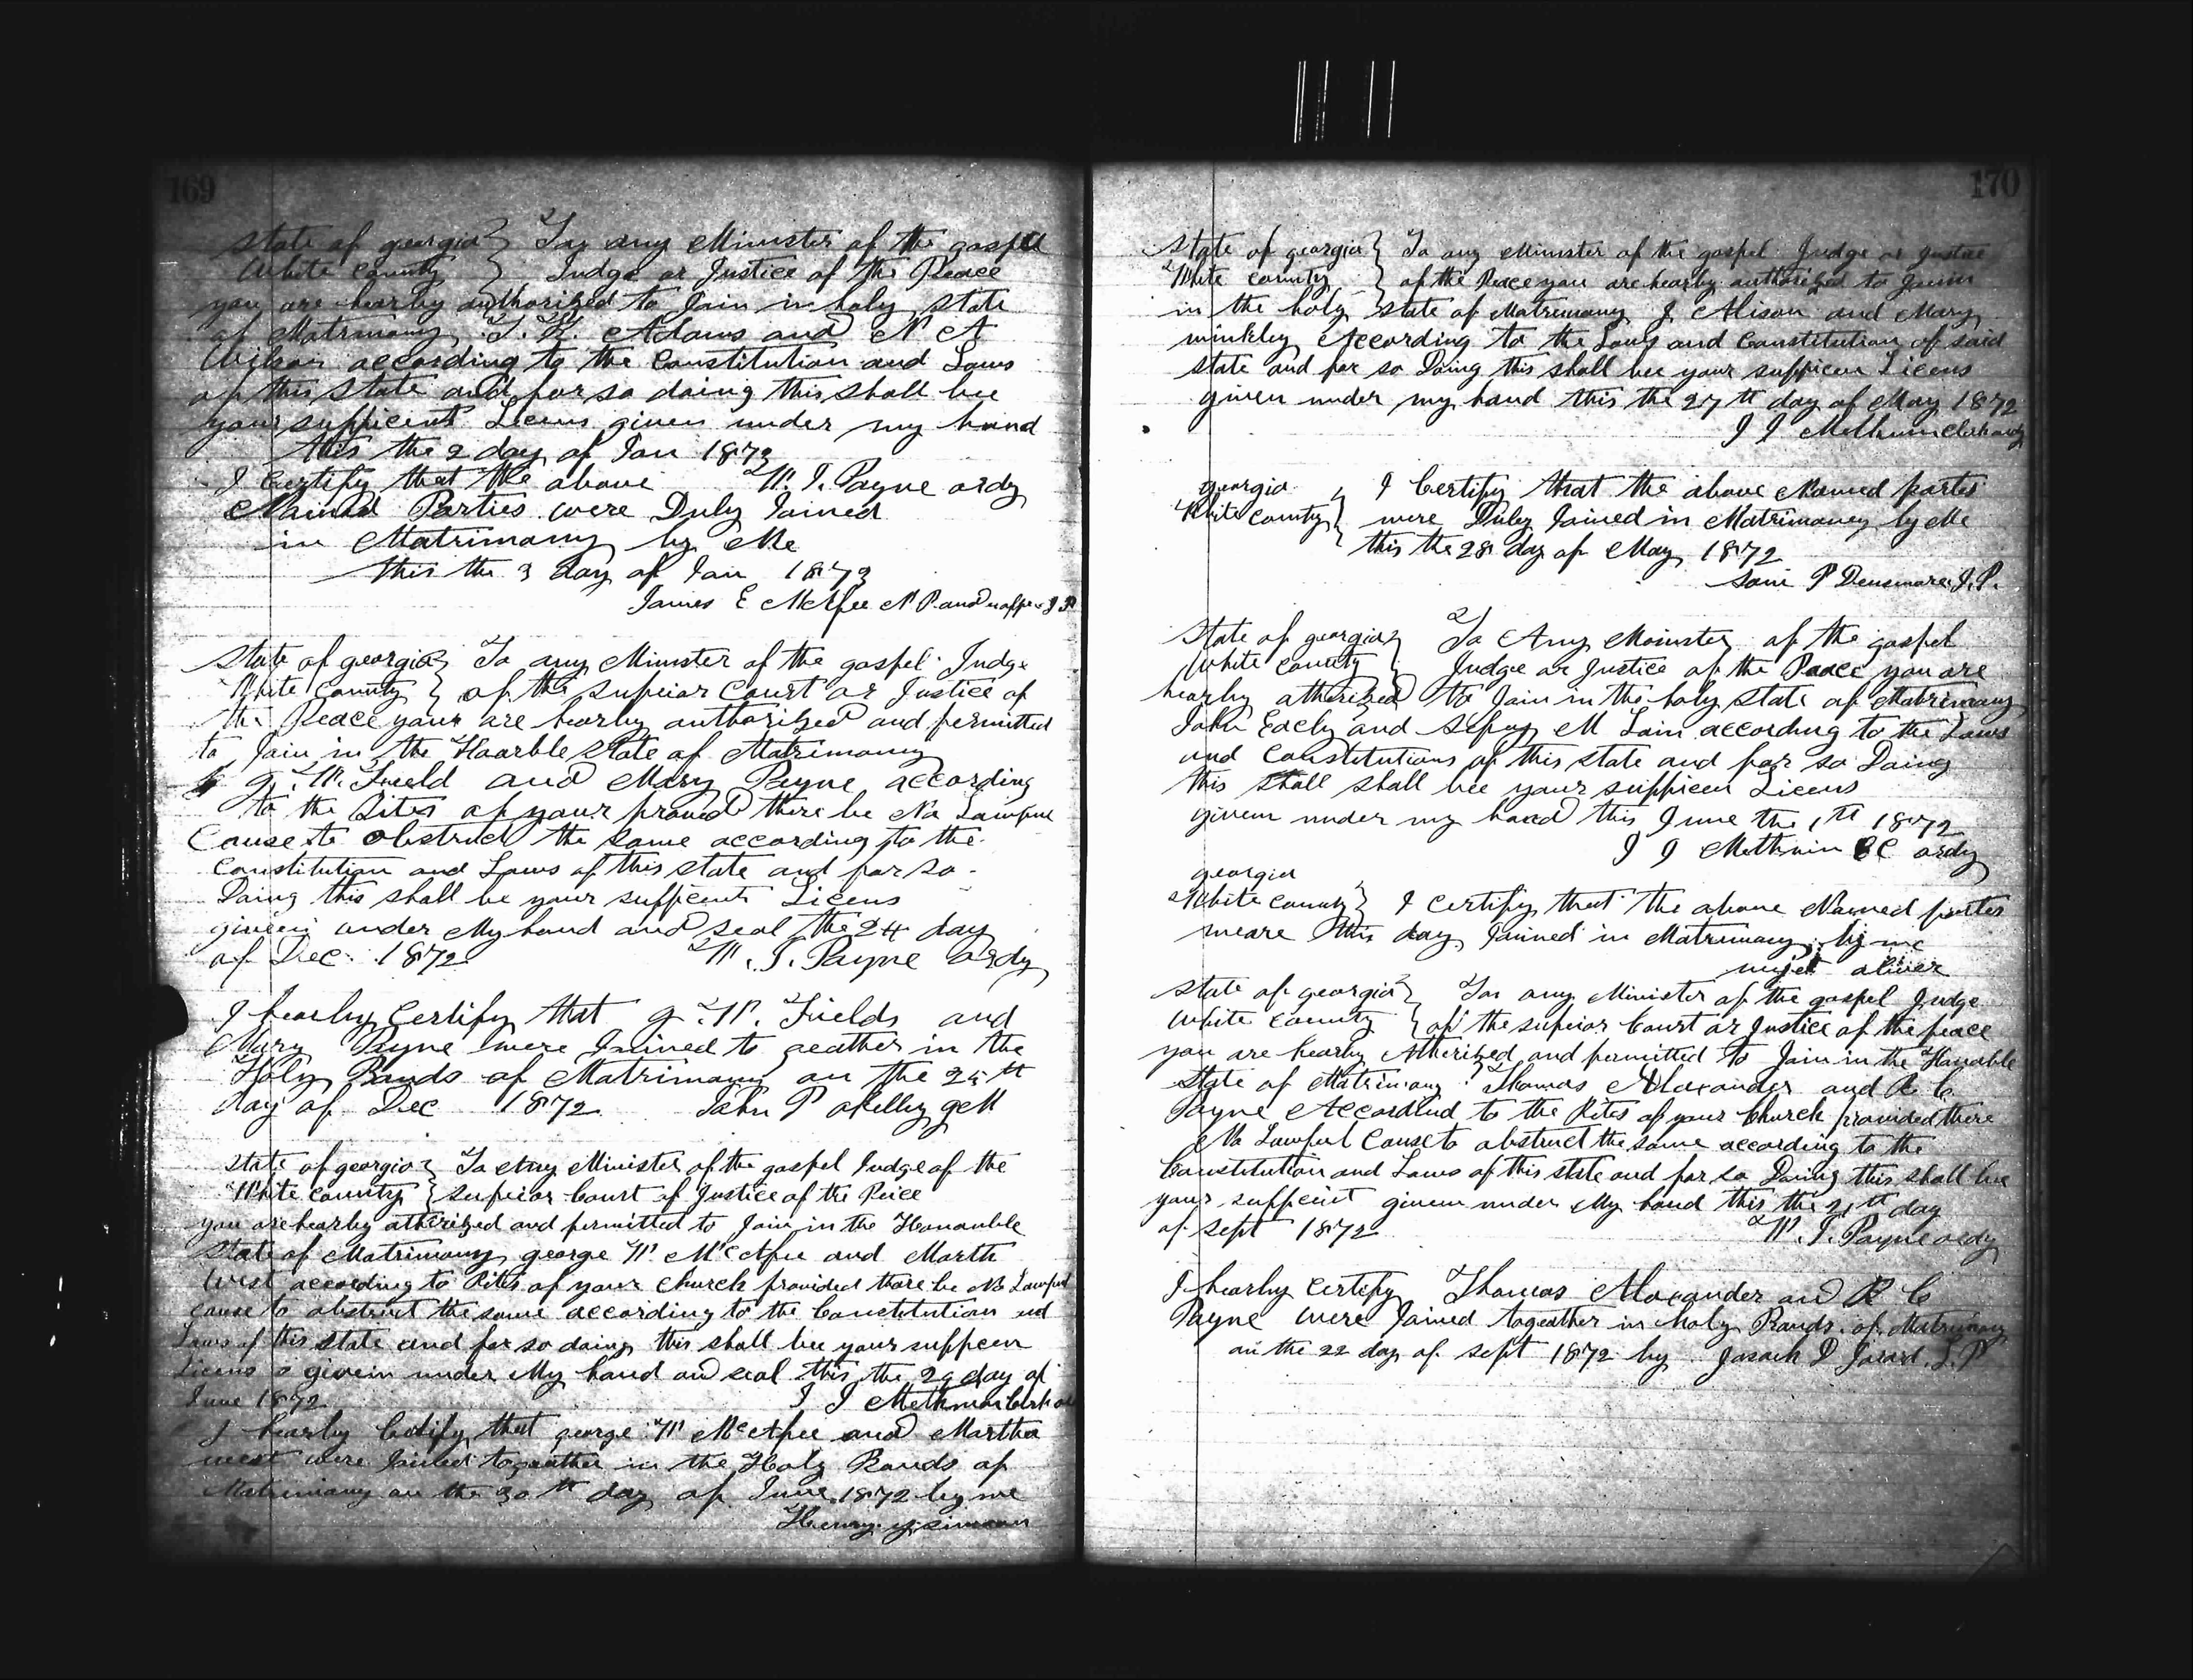 169
State of georgia } To any Minister of the gospel
White County } Judge or Justice of the Peace
you are hearby authorized to Join in holy state
of Matrimony T. H. Adams and N A
Wilson according to the Constitution and Laws
of this State and for so doing this shall bee
your sufficent Licens given under my hand
this the 2 day of Jan 1873
I Certify that the above W. I. Payne ordy
Named Parties were Duly Joined
in Matrimony by Me
this the 3 day of Jan 1873
James E McAfee N P and J P
State of georgia } To any Minister of the gospel Judge
White County } of the supeior Court or Justice of
the Peace your are hearby authorized and permitted
to Join in the Hoarble State of Matrimony
g. W. Field and Mary Payne according
to the Rites of your provied there be No Lawfue
Cause to obstruct the same according to the
Constitution and Laws of this state and for so
Doing this shall be your sufficent Licens
givein under My hand and seal the 24 day
of Dec 1872 W. I. Payne ordy
I hearby Certify that g. W. Fields and
Mary Payne were Joined to geather in the
Holy Bands of Matrimony on the 25th
day of Dec 1872 John P okelley
State of georgia } To Any Minister of the gospel Judge of the
White County } supeior Court of Justice of the Peice
you are hearby atherized and permitted to Join in the Honouble
State of Matrimony george W. McAfee and Marth
West according to Rites of your Church provided there be No Lawfut
cause to obstruct the same according to the Constitution nd
Laws of this state and for so doing this shall bee your sufficen
Licens givein under My hand and seal this the 29 day of
June 1872 I I Clerk
I hearby Certify that george W McAfee and Martha
west were Joined togeather in the Holy Bands of
Matrimony on the 30th day of June 1872 by me
Henry
170
State of georgia } To any Minister of the gospel Judge or Justice
White County } of the Peace you are hearby authorized to Join
in the holy State of Matremony J Alison and Mary
winkley According to the Laws and Constitution of said
state and for so Doing this shall bee your sufficen Licens
given under my hand this the 27th day of May 1872
I I
georgia } I Certify that the above Named partes
White County } were Duley Joined in Matrimoney by Me
this the 28 day of May 1872
Sam P Densmore J. P.
State of georgia } To Any Moinister of the gospel
White County } Judge or Justice of the Peace you are
hearby atherized to Join in the holy State of Matrimony
John Eaely and M Lain according to the Laws
and Constitutions of this state and for so Doing
this shall shall bee your sufficen Licens
givein under my hand this June the 1th 1872
I I C ordy
georgia
White County } I Certify that the above Named partes
weare this day Joined in Matrimony by me
oliver
State of georgia } To any Minister of the gospel Judge
White County } of the supeior Court or Justice of the peace
you are hearby Atherized and permitted to Join in the Honable
State of Matrimony Thomas Alaxander and R C
Payne Accordind to the Rites of your Church provided there
No Lawful Cause to obstruct the same according to the
Constitution and Laws of this state and for so Doing this shall bee
your sufficint givein under My hand this the 21th day
of Sept 1872 W. I. Payne ordy
I hearby Certify Thomas Alaxander and R C
Payne were Joined togeather in holy Bands of Matrimony
on the 22 day of Sept 1872 by